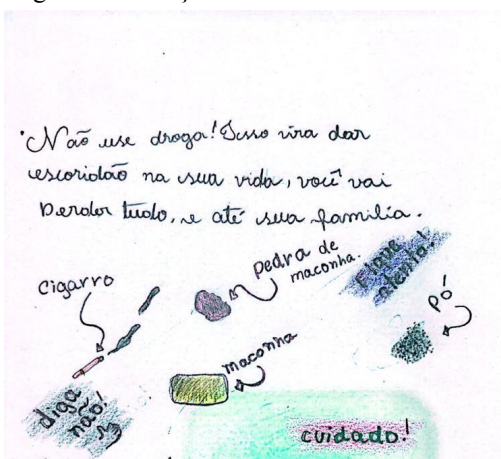 Não use droga! Isso vira dar
escoridão na sua vida, você vai
Perder tudo, e até sua familia.
Pedra de
maconha.
Fique
atento!
Cigarro
Pó
maconha
diga
não!
cuidado!